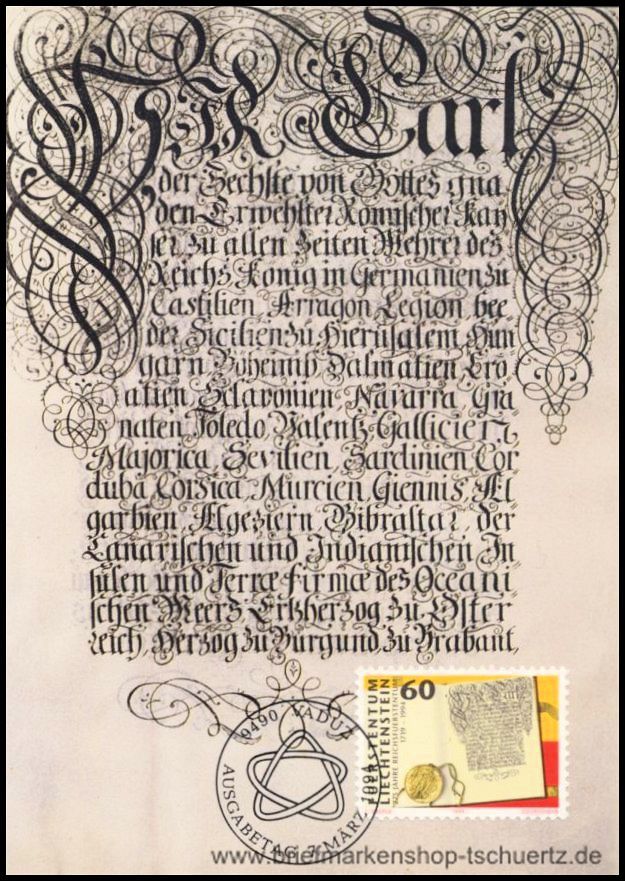 Wir Carl
der Sechste von Gottes gna
den Erwehlter Römischer Kay
ser, zu allen Zeiten Mehrer des
Reichs König in Germanien zu
Castilien, Arragon, Legion, bee
der Sicilien zu Hierusalem, Hun
garn, Böheimb, Dalmatien, Cro
atien, Sclavonien, Navarra, Gra
naten, Toledo, Valentz, Gallicien,
Majorica, Sevilien, Sardinien, Cor
duba, Corsica, Murcien, Giennis, Al
garbien, Algeziern, Gibraltar, der
Canarischen und Indianischen In
sulen und Terræ firmæ des Oceani
schen Meers, Ertzherzog zu Öster
reich, Herzog zu Burgund, zu Brabant,
60
FÜRSTENTUM
LIECHTENSTEIN
275 JAHRE REICHSFUERSTENTUM
1719 - 1994
9490 VADUZ
AUSGABETAG 7. MÄRZ 1994
www.briefmarkenshop-tschuertz.de